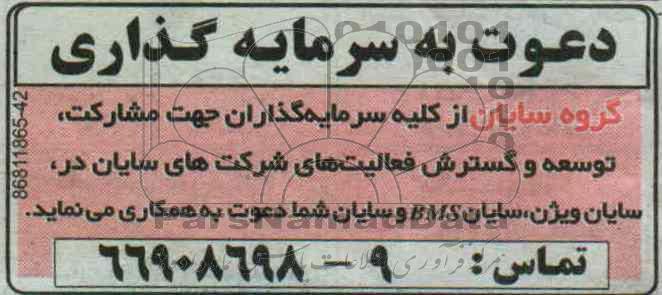 دعوت به سرمایه گذاری
گروه سایان از کلیه سرمایه‌گذاران جهت مشارکت،
توسعه و گسترش فعالیت‌های شرکت های سایان در،
سایان ویژن، سایان BMS و سایان شما دعوت به همکاری می نماید.
تماس: ۹ - ۶۶۹۰۸۶۹۸
86811865-42
ParsNamadData